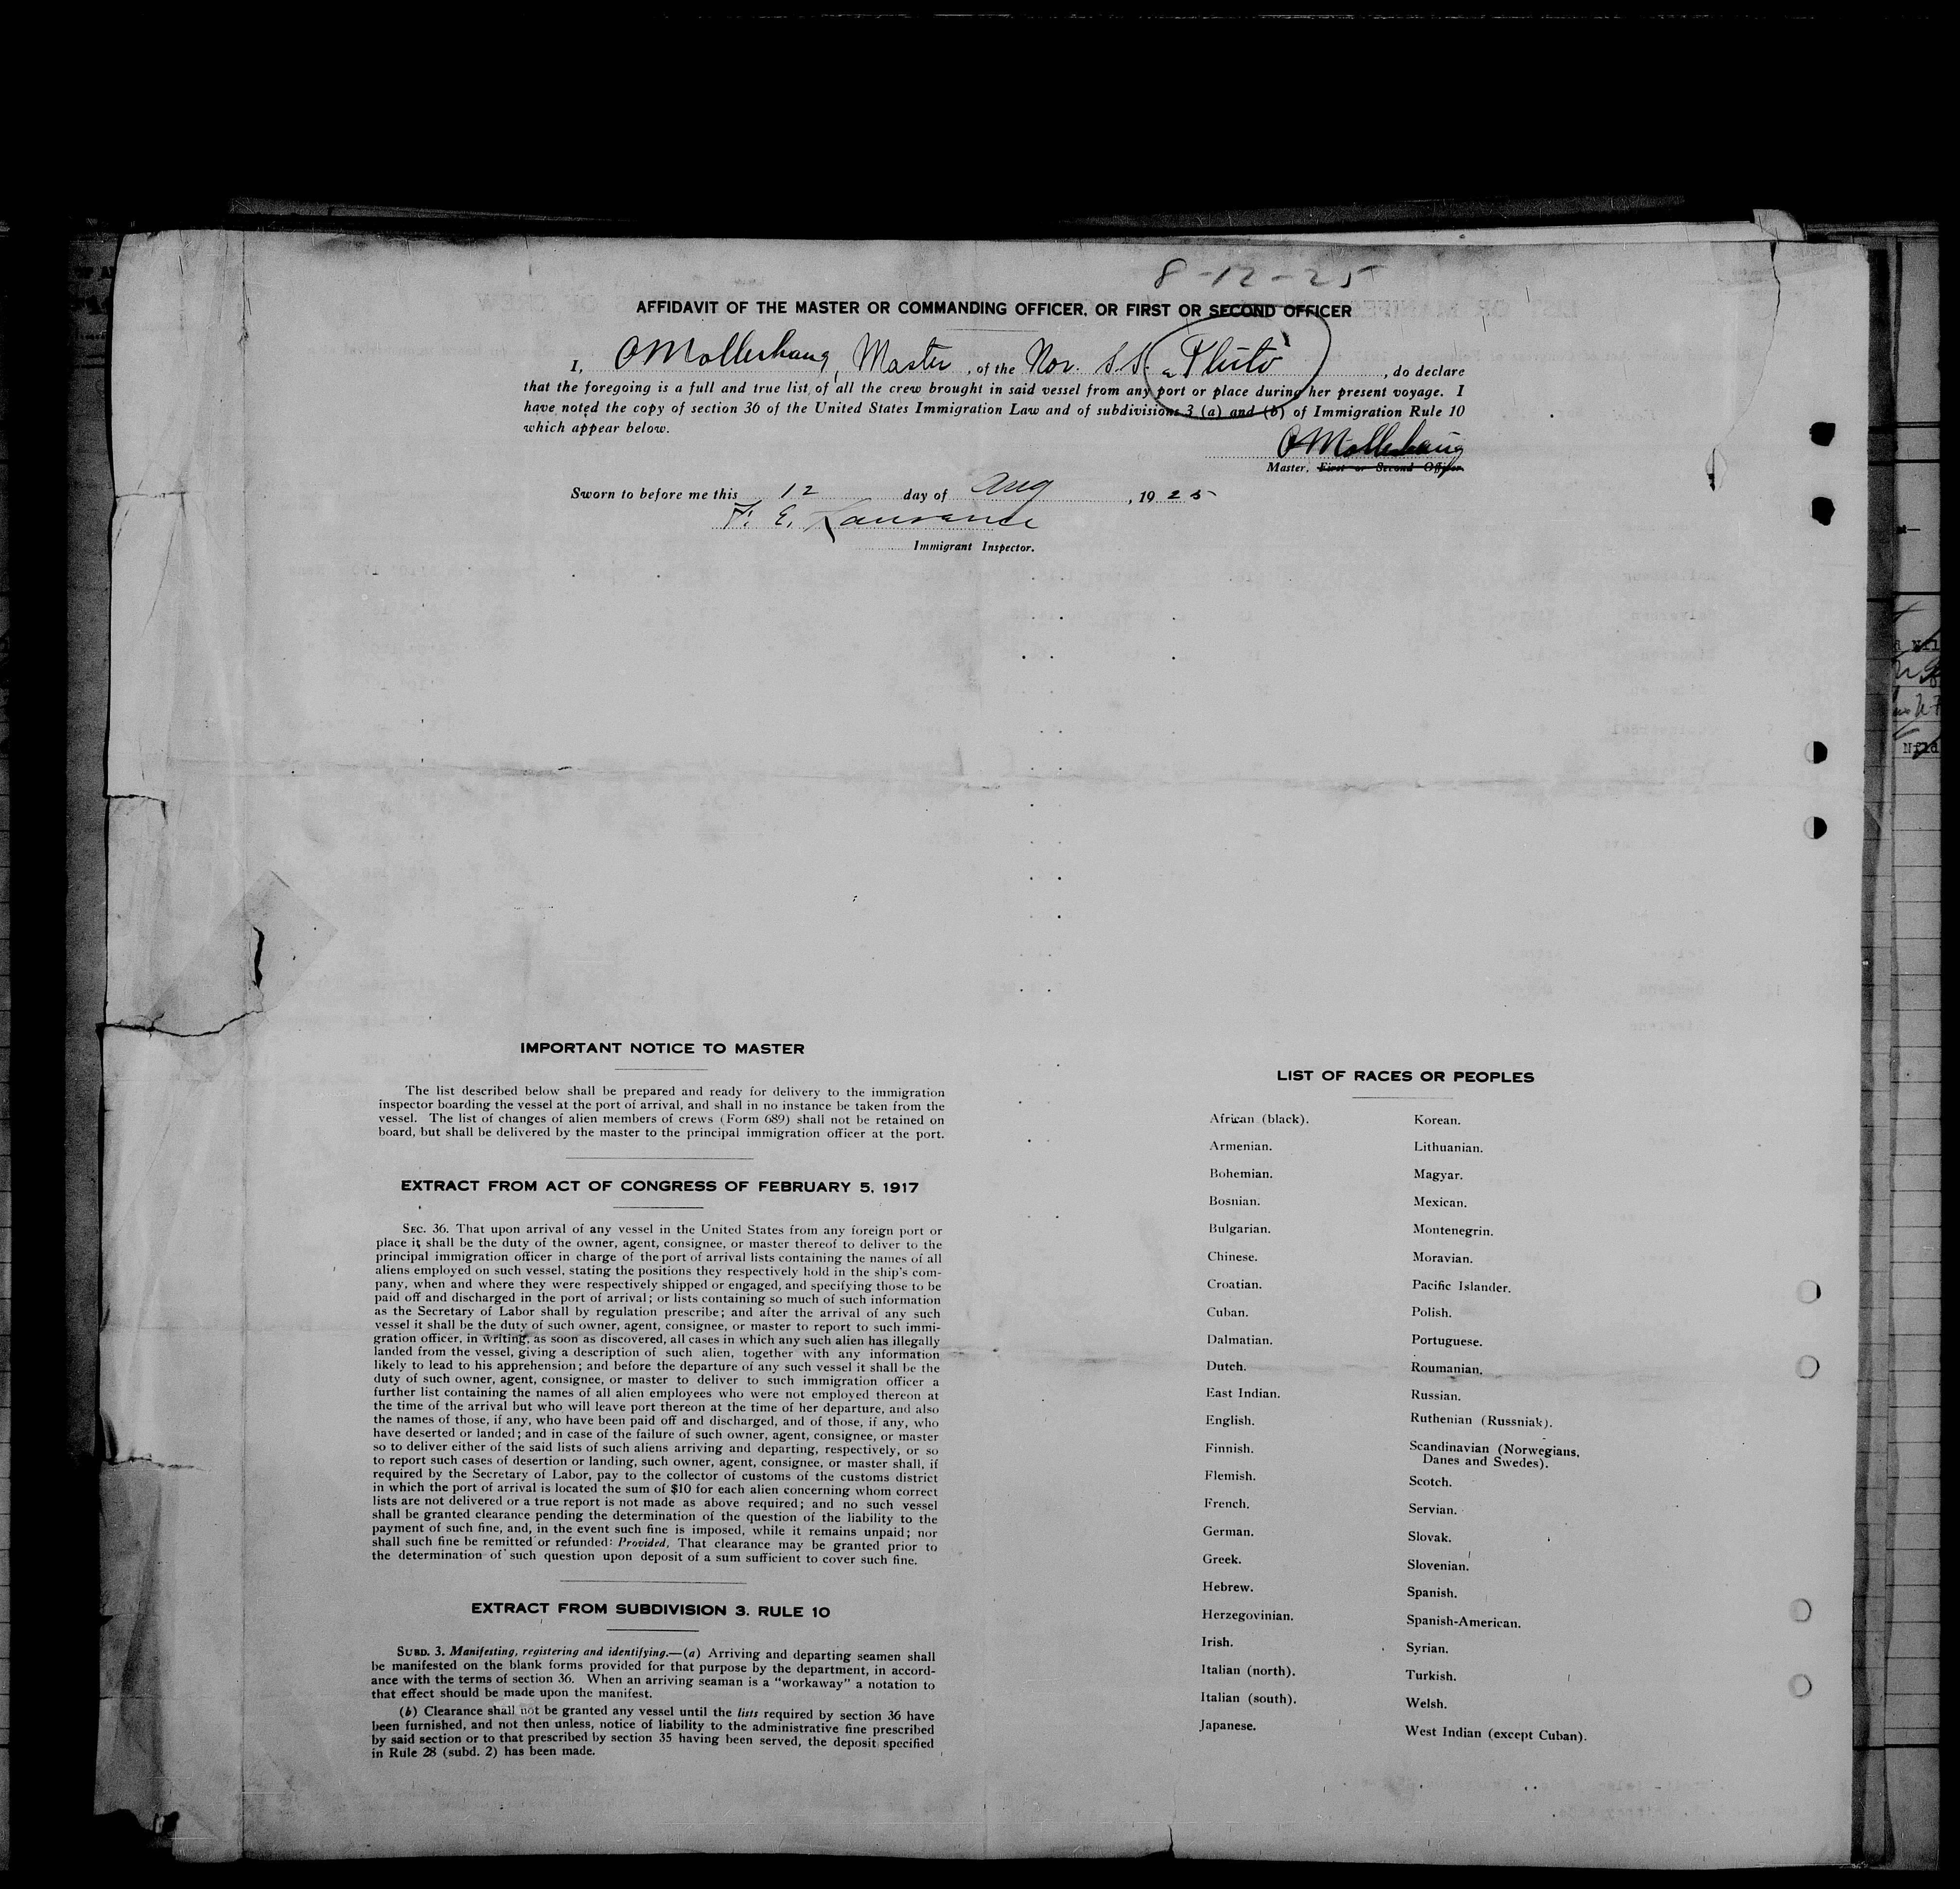 8-12-25
AFFIDAVIT OF THE MASTER OR COMMANDING OFFICER, OR FIRST OR SECOND OFFICER
I, O Mollerhaug, Master, of the Nor. S.S. "Pluto", do declare
that the foregoing is a full and true list of all the crew brought in said vessel from any port or place during her present voyage. I
have noted the copy of section 36 of the United States Immigration Law and of subdivisions 3 (a) and (b) of Immigration Rule 10
which appear below.
O Mollerhaug
Master, First or Second Officer.
Sworn to before me this 12 day of Aug, 1925
F. E. Lawrance
Immigrant Inspector.
IMPORTANT NOTICE TO MASTER
The list described below shall be prepared and ready for delivery to the immigration
inspector boarding the vessel at the port of arrival, and shall in no instance be taken from the
vessel. The list of changes of alien members of crews (Form 689) shall not be retained on
board, but shall be delivered by the master to the principal immigration officer at the port.
EXTRACT FROM ACT OF CONGRESS OF FEBRUARY 5, 1917
SEC. 36. That upon arrival of any vessel in the United States from any foreign port or
place it shall be the duty of the owner, agent, consignee, or master thereof to deliver to the
principal immigration officer in charge of the port of arrival lists containing the names of all
aliens employed on such vessel, stating the positions they respectively hold in the ship's com-
pany, when and where they were respectively shipped or engaged, and specifying those to be
paid off and discharged in the port of arrival; or lists containing so much of such information
as the Secretary of Labor shall by regulation prescribe; and after the arrival of any such
vessel it shall be the duty of such owner, agent, consignee, or master to report to such immi-
gration officer, in writing, as soon as discovered, all cases in which any such alien has illegally
landed from the vessel, giving a description of such alien, together with any information
likely to lead to his apprehension; and before the departure of any such vessel it shall be the
duty of such owner, agent, consignee, or master to deliver to such immigration officer a
further list containing the names of all alien employees who were not employed thereon at
the time of the arrival but who will leave port thereon at the time of her departure, and also
the names of those, if any, who have been paid off and discharged, and of those, if any, who
have deserted or landed; and in case of the failure of such owner, agent, consignee, or master
so to deliver either of the said lists of such aliens arriving and departing, respectively, or so
to report such cases of desertion or landing, such owner, agent, consignee, or master shall, if
required by the Secretary of Labor, pay to the collector of customs of the customs district
in which the port of arrival is located the sum of $10 for each alien concerning whom correct
lists are not delivered or a true report is not made as above required; and no such vessel
shall be granted clearance pending the determination of the question of the liability to the
payment of such fine, and, in the event such fine is imposed, while it remains unpaid; nor
shall such fine be remitted or refunded: Provided, That clearance may be granted prior to
the determination of such question upon deposit of a sum sufficient to cover such fine.
EXTRACT FROM SUBDIVISION 3, RULE 10
SUBD. 3. Manifesting, registering and identifying.—(a) Arriving and departing seamen shall
be manifested on the blank forms provided for that purpose by the department, in accord-
ance with the terms of section 36. When an arriving seaman is a "workaway" a notation to
that effect should be made upon the manifest.
(b) Clearance shall not be granted any vessel until the lists required by section 36 have
been furnished, and not then unless, notice of liability to the administrative fine prescribed
by said section or to that prescribed by section 35 having been served, the deposit specified
in Rule 28 (subd. 2) has been made.
LIST OF RACES OR PEOPLES
African (black).
Armenian.
Bohemian.
Bosnian.
Bulgarian.
Chinese.
Croatian.
Cuban.
Dalmatian.
Dutch.
East Indian.
English.
Finnish.
Flemish.
French.
German.
Greek.
Hebrew.
Herzegovinian.
Irish.
Italian (north).
Italian (south).
Japanese.
Korean.
Lithuanian.
Magyar.
Mexican.
Montenegrin.
Moravian.
Pacific Islander.
Polish.
Portuguese.
Roumanian.
Russian.
Ruthenian (Russniak).
Scandinavian (Norwegians,
Danes and Swedes).
Scotch.
Servian.
Slovak.
Slovenian.
Spanish.
Spanish-American.
Syrian.
Turkish.
Welsh.
West Indian (except Cuban).
Nfld